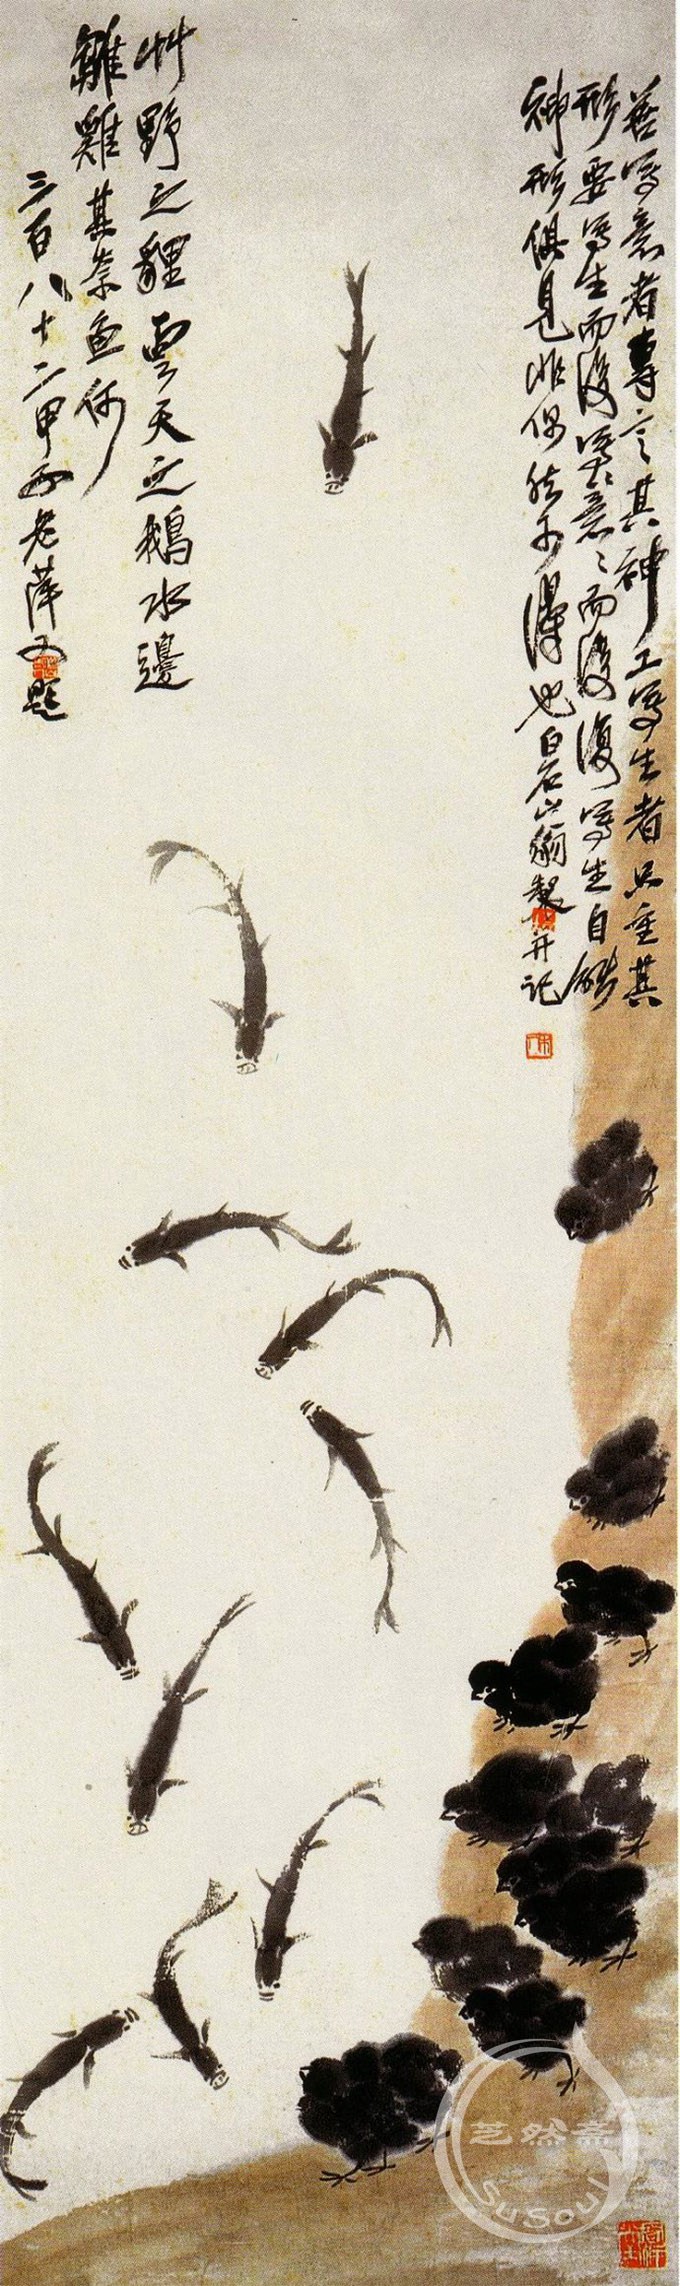 善写意者專言其神工写生者只重其
形要写生而後写意写意而後復写生自能
神形俱見非偶然可得也白石山翁製并記
艸野之貍雲天之鵝水邊
雛雞其奈魚何
三百八十二甲子老萍又題
芝然斋
SuSoul